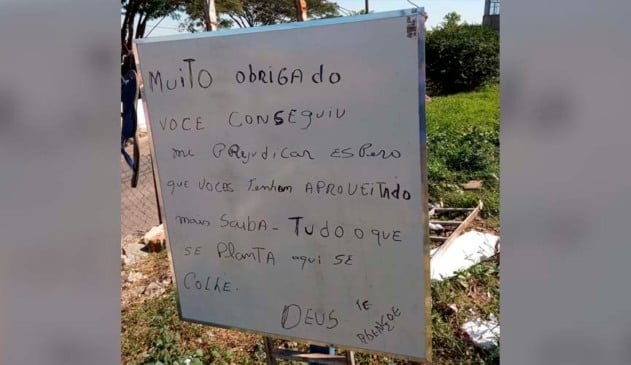 MUITO OBRIGADO
VOCE CONSEGUIU
me PREJUDICAR ESPERO
que VOCES Tenham APROVEITADO
mais SAIBA - TUDO O QUE
SE PLANTA aqui SE
COLHE.
DEUS TE
ABENÇOE